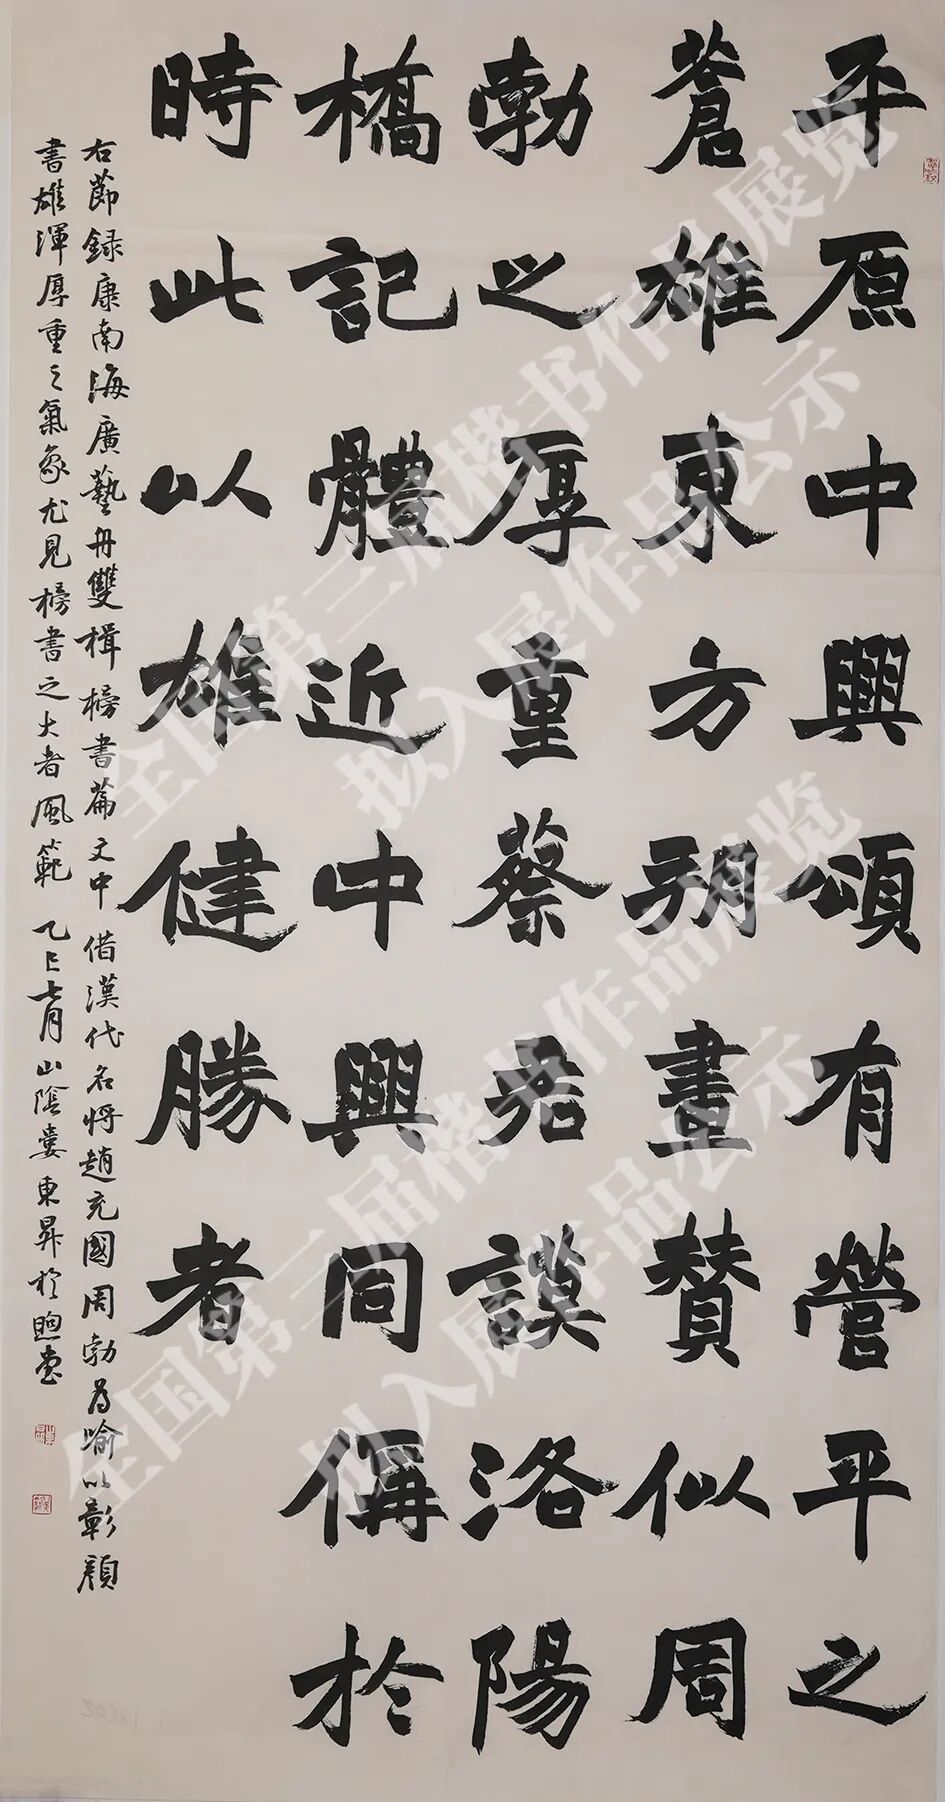 平原中興頌有營平之
蒼雄東方朔畫賛似周
勃之厚重蔡君謨洛陽
橋記體近中興同偁於
時此以雄健勝者
右節録康南海廣藝舟雙楫榜書篇文中借漢代名將趙充國周勃為喻以彰顏
書雄渾厚重之氣象尤見榜書之大者風範 乙巳七月山陰婁東昇於煦堂
全国第三届楷书作品展览
拟入展作品公示
全国第三届楷书作品展览
拟入展作品公示